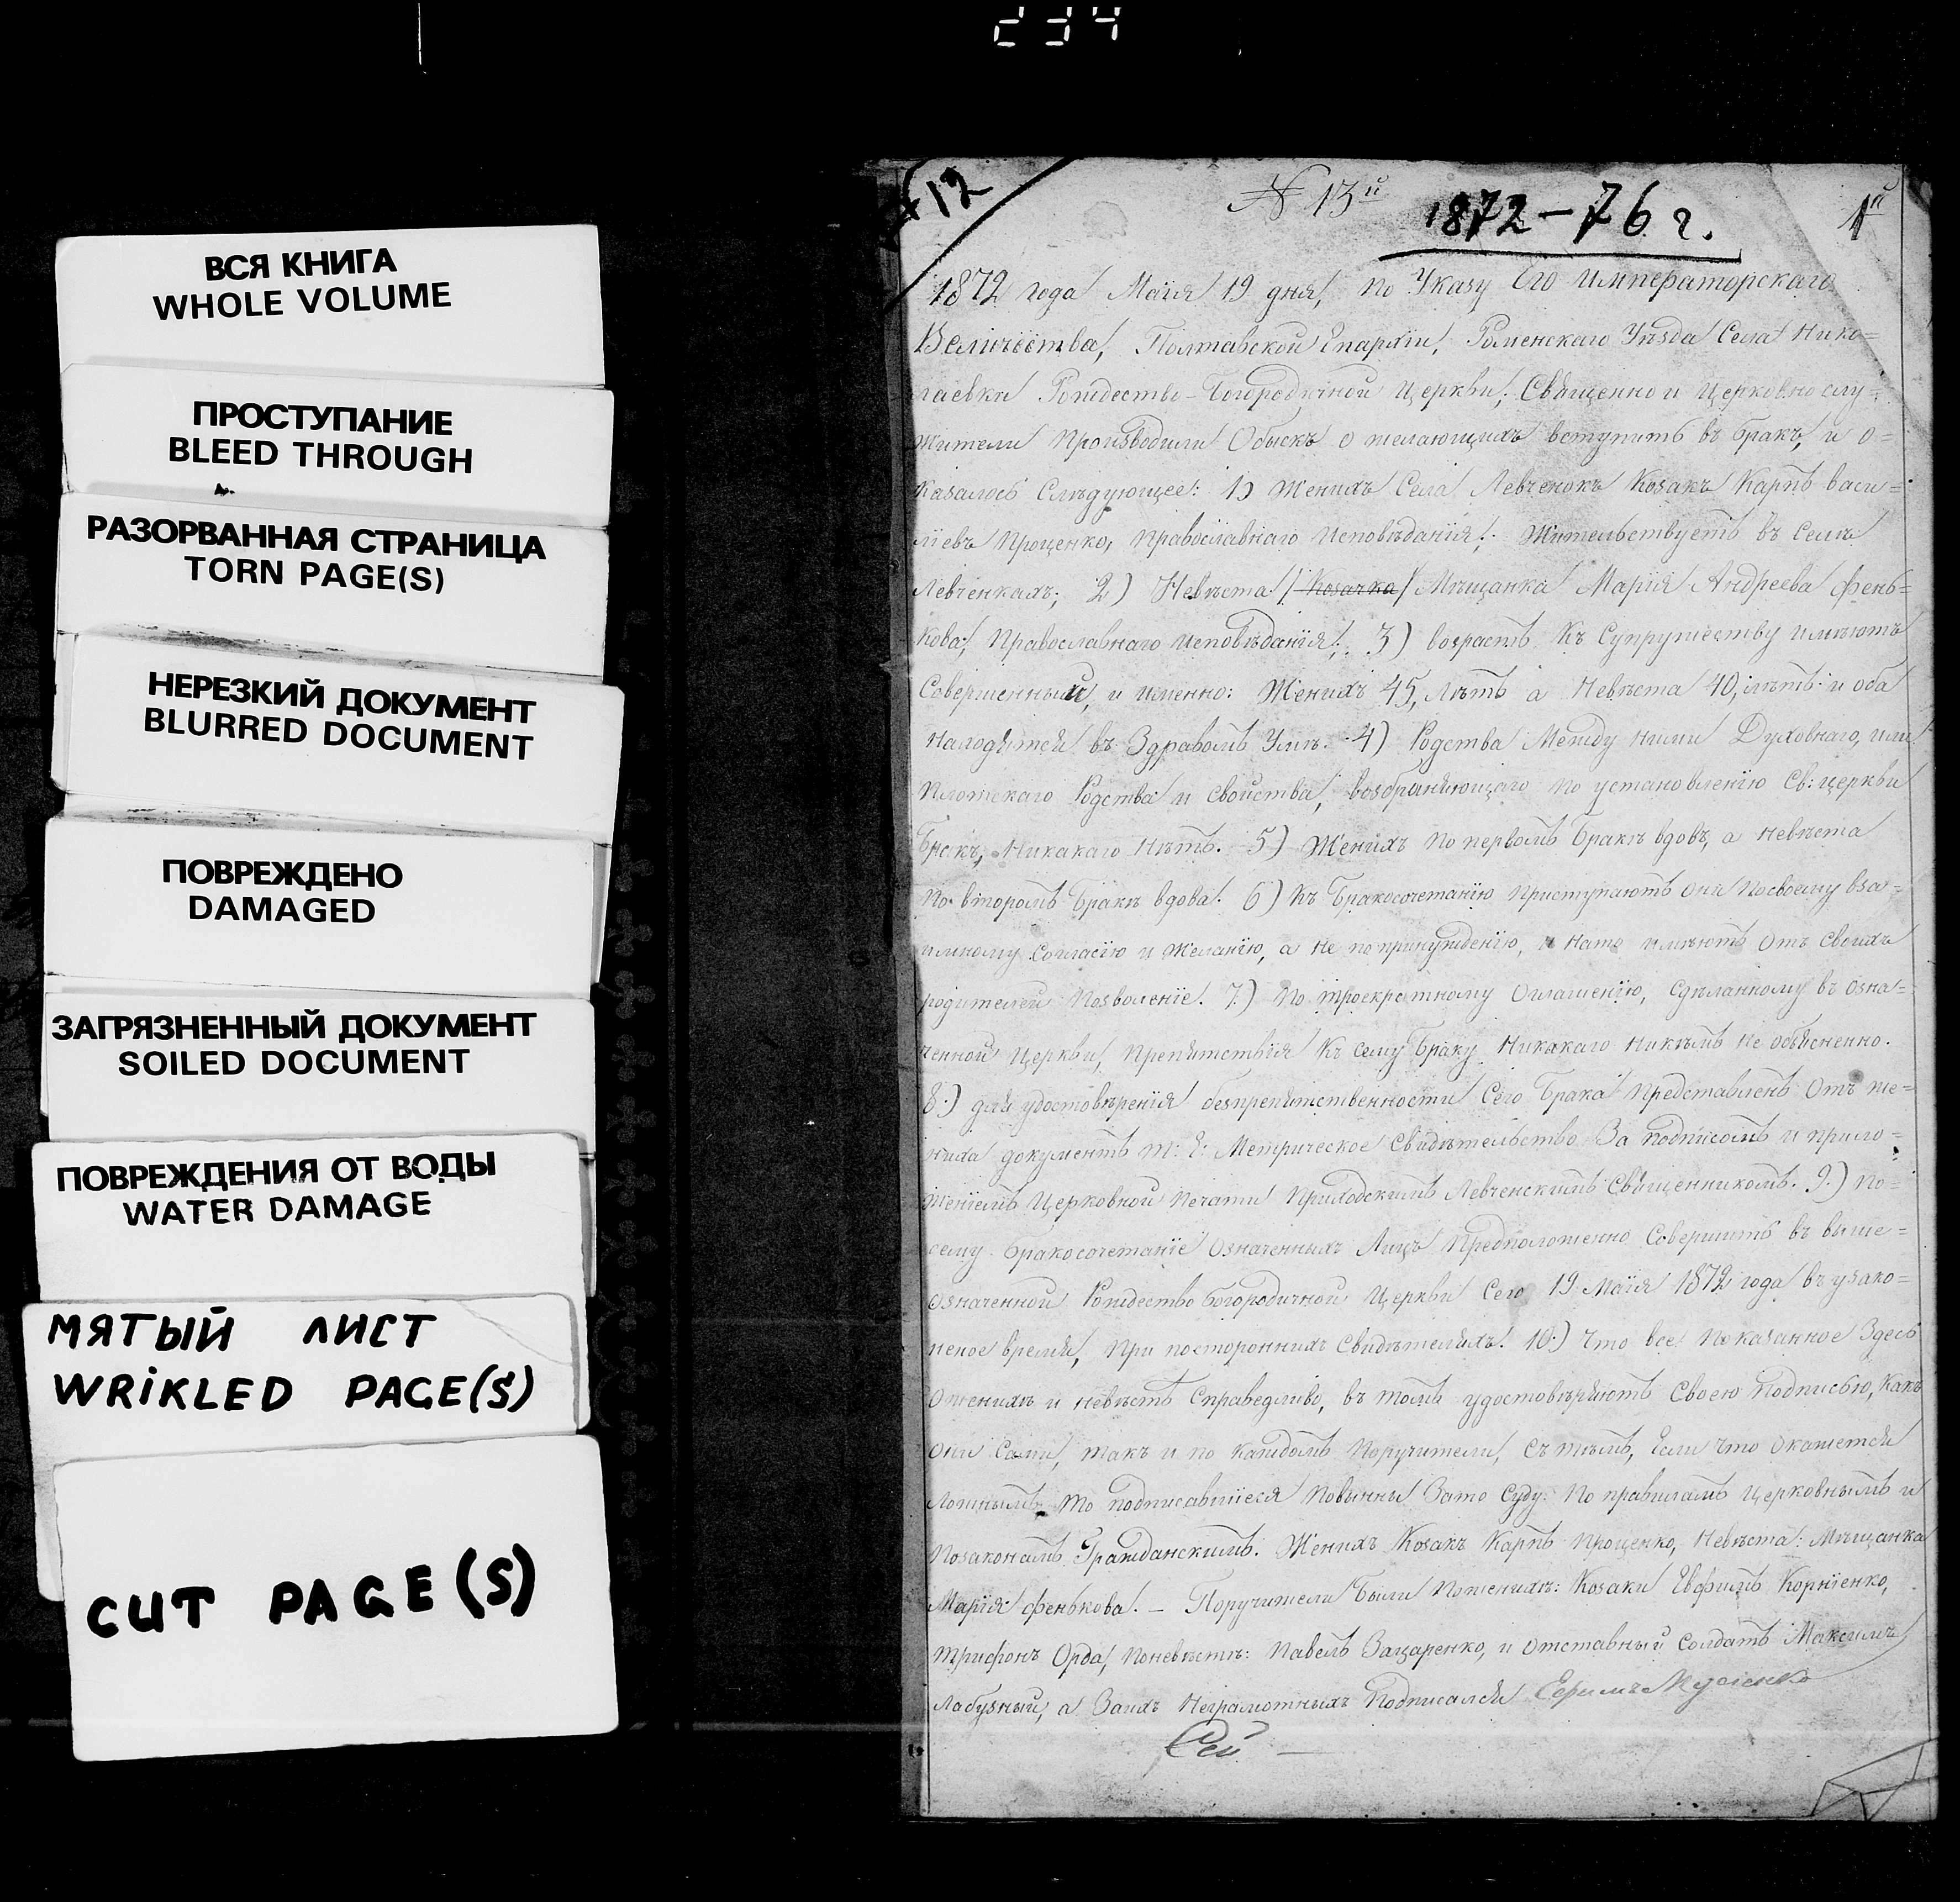 234
ВСЯ КНИГА
WHOLE VOLUME
ПРОСТУПАНИЕ
BLEED THROUGH
РАЗОРВАННАЯ СТРАНИЦА
TORN PAGE(S)
НЕРЕЗКИЙ ДОКУМЕНТ
BLURRED DOCUMENT
ПОВРЕЖДЕНО
DAMAGED
ЗАГРЯЗНЕННЫЙ ДОКУМЕНТ
SOILED DOCUMENT
ПОВРЕЖДЕНИЯ ОТ ВОДЫ
WATER DAMAGE
МЯТЫЙ ЛИСТ
WRIKLED PAGE(S)
CUT PAGE(S)
12
№ 13й
1872-76 г.
1й
1872 года Маія 19 дня, по Указу Его Императорскаго
Величества, Полтавской Епархіи, Роменскаго Уѣзда Села Нико=
лаевки Рождество-Богородичной Церкви, Священно и Церковнослу=
жители производили Обыскъ о желающихъ вступить въ бракъ, и о=
казалось Слѣдующее: 1) Женихъ Села Левченокъ Козакъ Карпъ Васи=
ліевъ Проценко, православнаго исповѣданія; Жительствуетъ въ Селѣ
Левченкахъ; 2) Невѣста /Козачка/ Мѣщанка Марія Андреева Фень=
кова, православнаго исповѣданія; 3) возрастъ къ Супружеству имѣютъ
Совершенный, и именно: Женихъ 45, лѣтъ а Невѣста 40, лѣтъ и оба
находятся въ Здравомъ Умѣ. 4) Родства Между ними Духовнаго, или
плотскаго Родства и свойства, возбраняющаго по установленію Св: церкви
Бракъ, Никакаго нѣтъ. 5) Женихъ по первомъ Бракѣ вдовъ, а Невѣста
по второмъ Бракѣ вдова. 6) Къ Бракосочетанію приступаютъ они по своему вза=
имному Согласію и желанію, а не по принужденію, и на то имѣютъ отъ своихъ
родителей позволеніе. 7) По троекратному Оглашенію, Сдѣланному въ озна=
ченной Церкви, препятствія къ сему Браку Никакаго никѣмъ не объясненно.
8.) для удостовѣренія безпрепятственности Сего Брака представленъ отъ же=
ниха документъ т: е: Метрическое Свидѣтельство За подписомъ и прило=
женіемъ Церковной печати Приходскимъ Левченскимъ Священникомъ. 9.) По=
сему Бракосочетаніе означенныхъ Лицъ предположенно Совершить въ выше=
означенной Рождество Богородичной Церкви Сего 19 Маія 1872 года въ узако=
неное время, при постороннихъ Свидѣтеляхъ. 10.) Что все показанное Здесь
о женихѣ и невѣстѣ Справедливо, въ томъ удостовѣряютъ Своею подписью, какъ
они Сами, такъ и по каждомъ поручители, съ тѣмъ, Если что окажется
ложнымъ то подписавшіеся повинны За то Суду по правиламъ Церковнымъ и
по законамъ Гражданскимъ. Женихъ Козакъ Карпъ Проценко, Невѣста: Мѣщанка
Марія Фенькова. — Поручители были по женихѣ: Козаки Евфимъ Корніенко,
Трифонъ Орда, по невѣстѣ: Павелъ Захаренко, и отставный солдатъ Максимъ
Лабузный, а За ихъ неграмотныхъ подписался Ефимъ